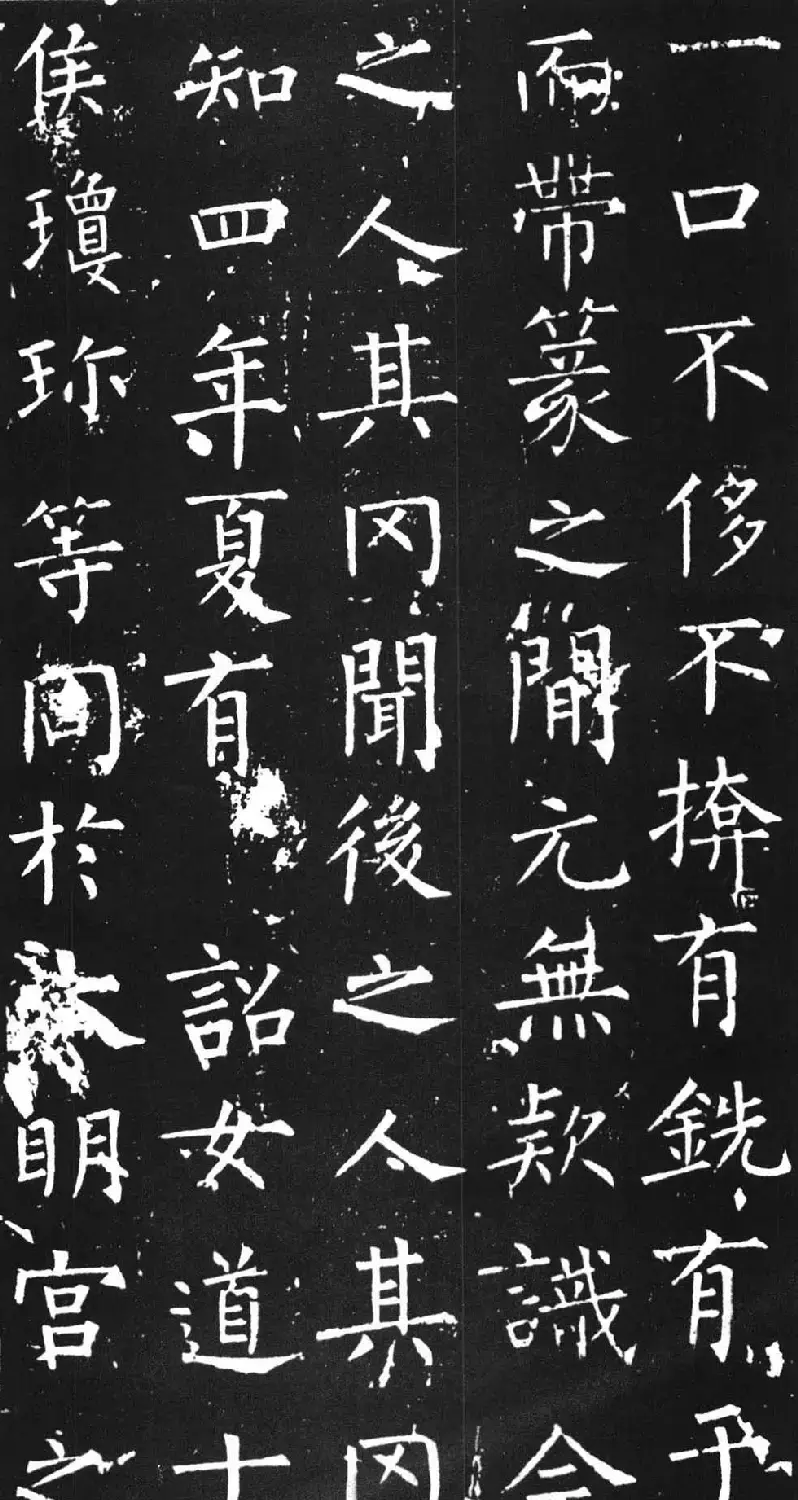 一口不侈不揜有銑有于
而帶篆之間元無款識今
之人其罔聞後之人其罔
知四年夏有詔女道士
侯瓊珎等同於大明宮之